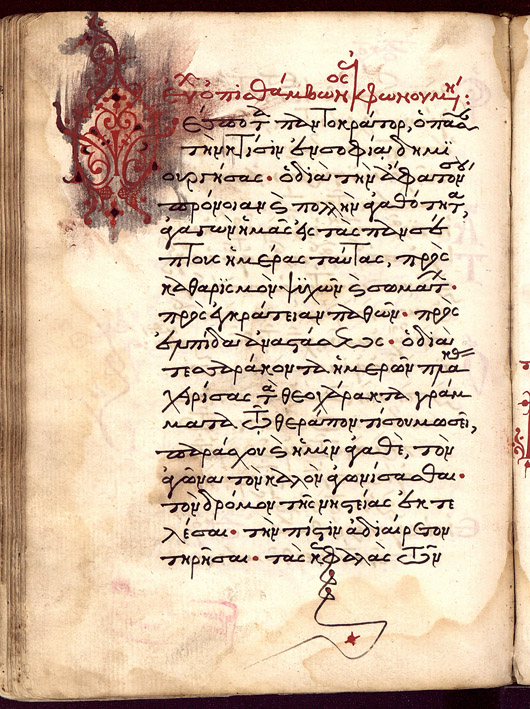 Εὐχ ὀπισθάμβωνος ἐκφωνουμένη:
Δέσποτα παντοκράτορ, ὁ πᾶσαν
τὴν κτίσιν ἐν σοφία δημι
ουργήσας· ὁ διὰ τὴν ἄφατόν σου
πρόνοιαν καὶ πολλὴν ἀγαθότητα,
ἀγαγὼν ἡμᾶς εἰς τὰς πανσέ
πτους ἡμέρας ταύτας, πρὸς
καθαρϊσμὸν ψυχῶν καὶ σωμάτων·
πρὸς ἐγκράτειαν παθῶν· πρὸς
ἐλπίδα ἀναστάσεως· ὁ διὰ
τεσσαράκοντα ἡμερῶν πλάκας
χειρίσας τὰ θεοχάρακτα γράμ
ματα τῷ θεράποντί σου μωσεῖ,
παράσχου καὶ ἡμῖν ἀγαθὲ, τὸν
ἀγῶνα τὸν καλὸν ἀγωνίσασθαι·
τὸν δρόμον τῆς νηστείας ἐκτε
λέσαι· τὴν πίστιν ἀδιαίρετον
τηρῆσαι· τὰς κεφαλὰς τῶν